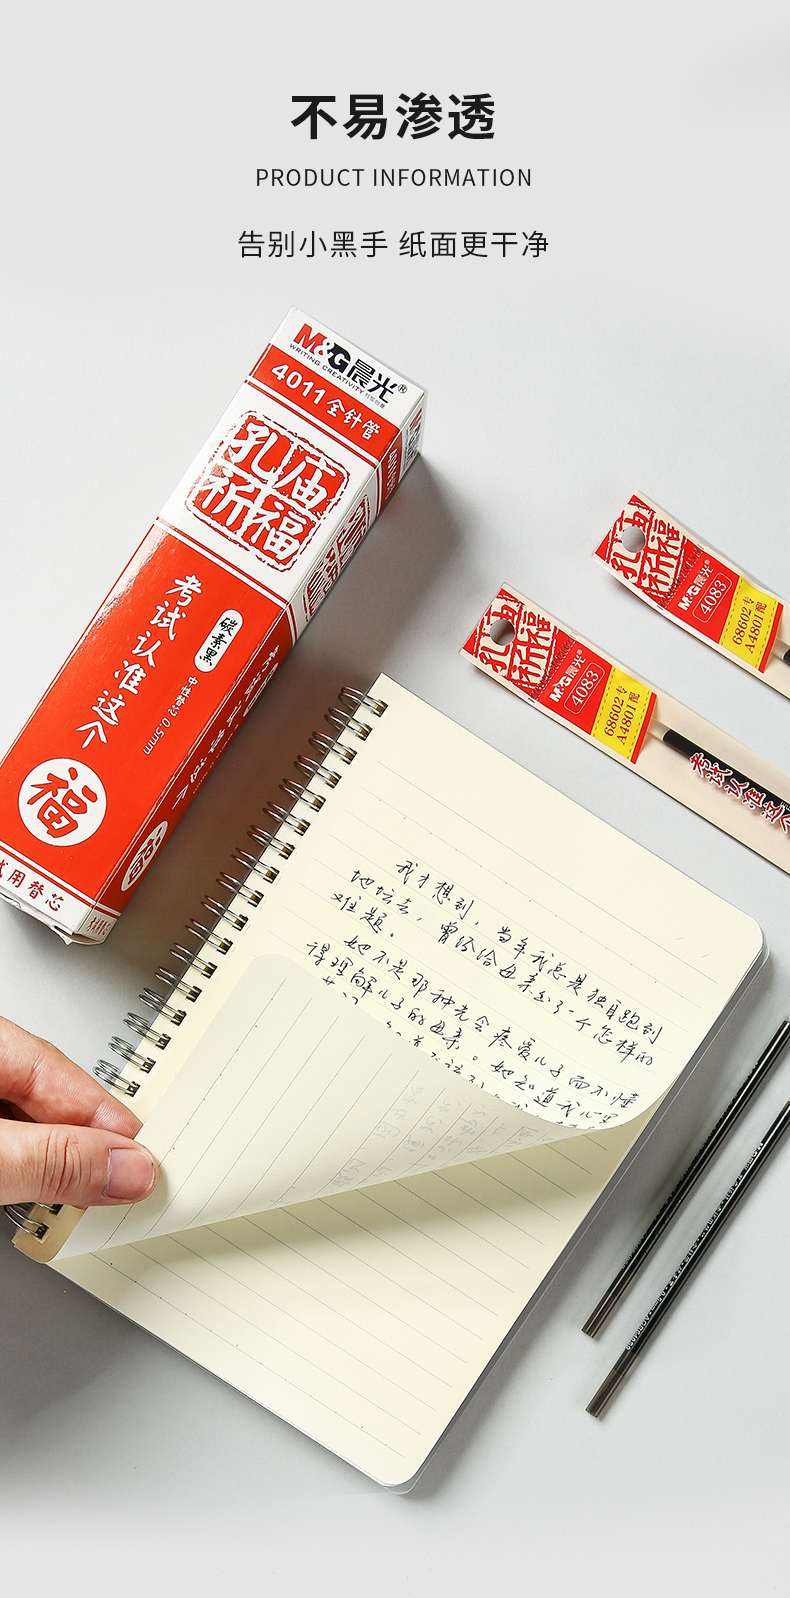 不易渗透
PRODUCT INFORMATION
告别小黑手 纸面更干净
M&G晨光®
WRITING CREATIVITY
4011全针管
孔庙
祈福
考试认准这个
碳素黑
中性替芯 0.5mm
福
试用替芯
孔庙
祈福
M&G晨光®
4083
68602专
A4801配
孔庙
祈福
M&G晨光®
4083
68602专
A4801配
考试认准这个
我才想到，当年我总是独自跑到
地坛去，曾经给母亲出了一个怎样的
难题。
她不是那种光会疼爱儿子而不懂
得理解儿子的母亲。她知道我心里